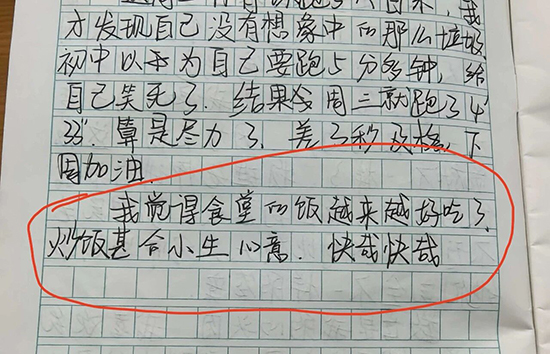 才发现自己没有想象中的那么垃圾
初中以为自己要跑5分多钟,给
自己笑死了.结果周三就跑了4
33".算是尽力了,差3秒及格,下
周加油.
我觉得食堂的饭越来越好吃了,
炒饭甚合小生心意.快哉快哉